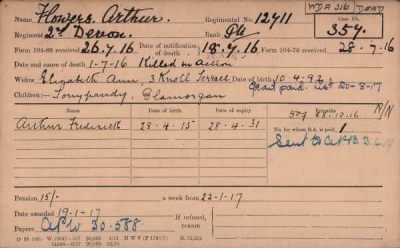 WDA 316 DEAD
Name Flowers Arthur. Regimental No. 12711 Case No.
Regiment 2nd Devon. Rank Pte 357.
Form 104-88 received 26.7.16 Date of notification of death 18.7.16 Form 104-76 received 28-7-16
Date and cause of death 1-7-16 Killed in Action
Widow Elizabeth Ann, 3 Knoll Terrace Date of Birth 10.4.92
Children:— Tonypandy, Glamorgan Grant paid. 20-8-17
Name Date of birth Date of expiry Remarks N/N
Arthur Frederick 28-4-15 28-4-31 28.10.16
No. for whom S.A. is paid 1
Sent to
Pension 15/- a week from 22-1-17
Date awarded 19-1-17 If refused,
Papers APW 30.588 reason